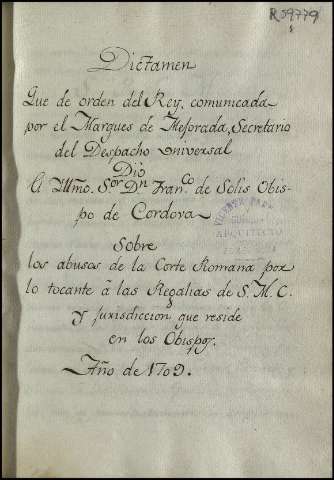 R 59779
Dictamen
Que de orden del Rey, comunicada
por el Marques de Mejorada, Secretario
del Despacho Universal
Dio
El Yllmo. S.or D.n Fran.co de Solis Obis-
po de Cordova
Sobre
los abusos de la Corte Romana por
lo tocante à las Regalias de S. M. C.
y jurisdiccion que reside
en los Obispos.
Año de 1709.
VICENTE
ARQUITECTO